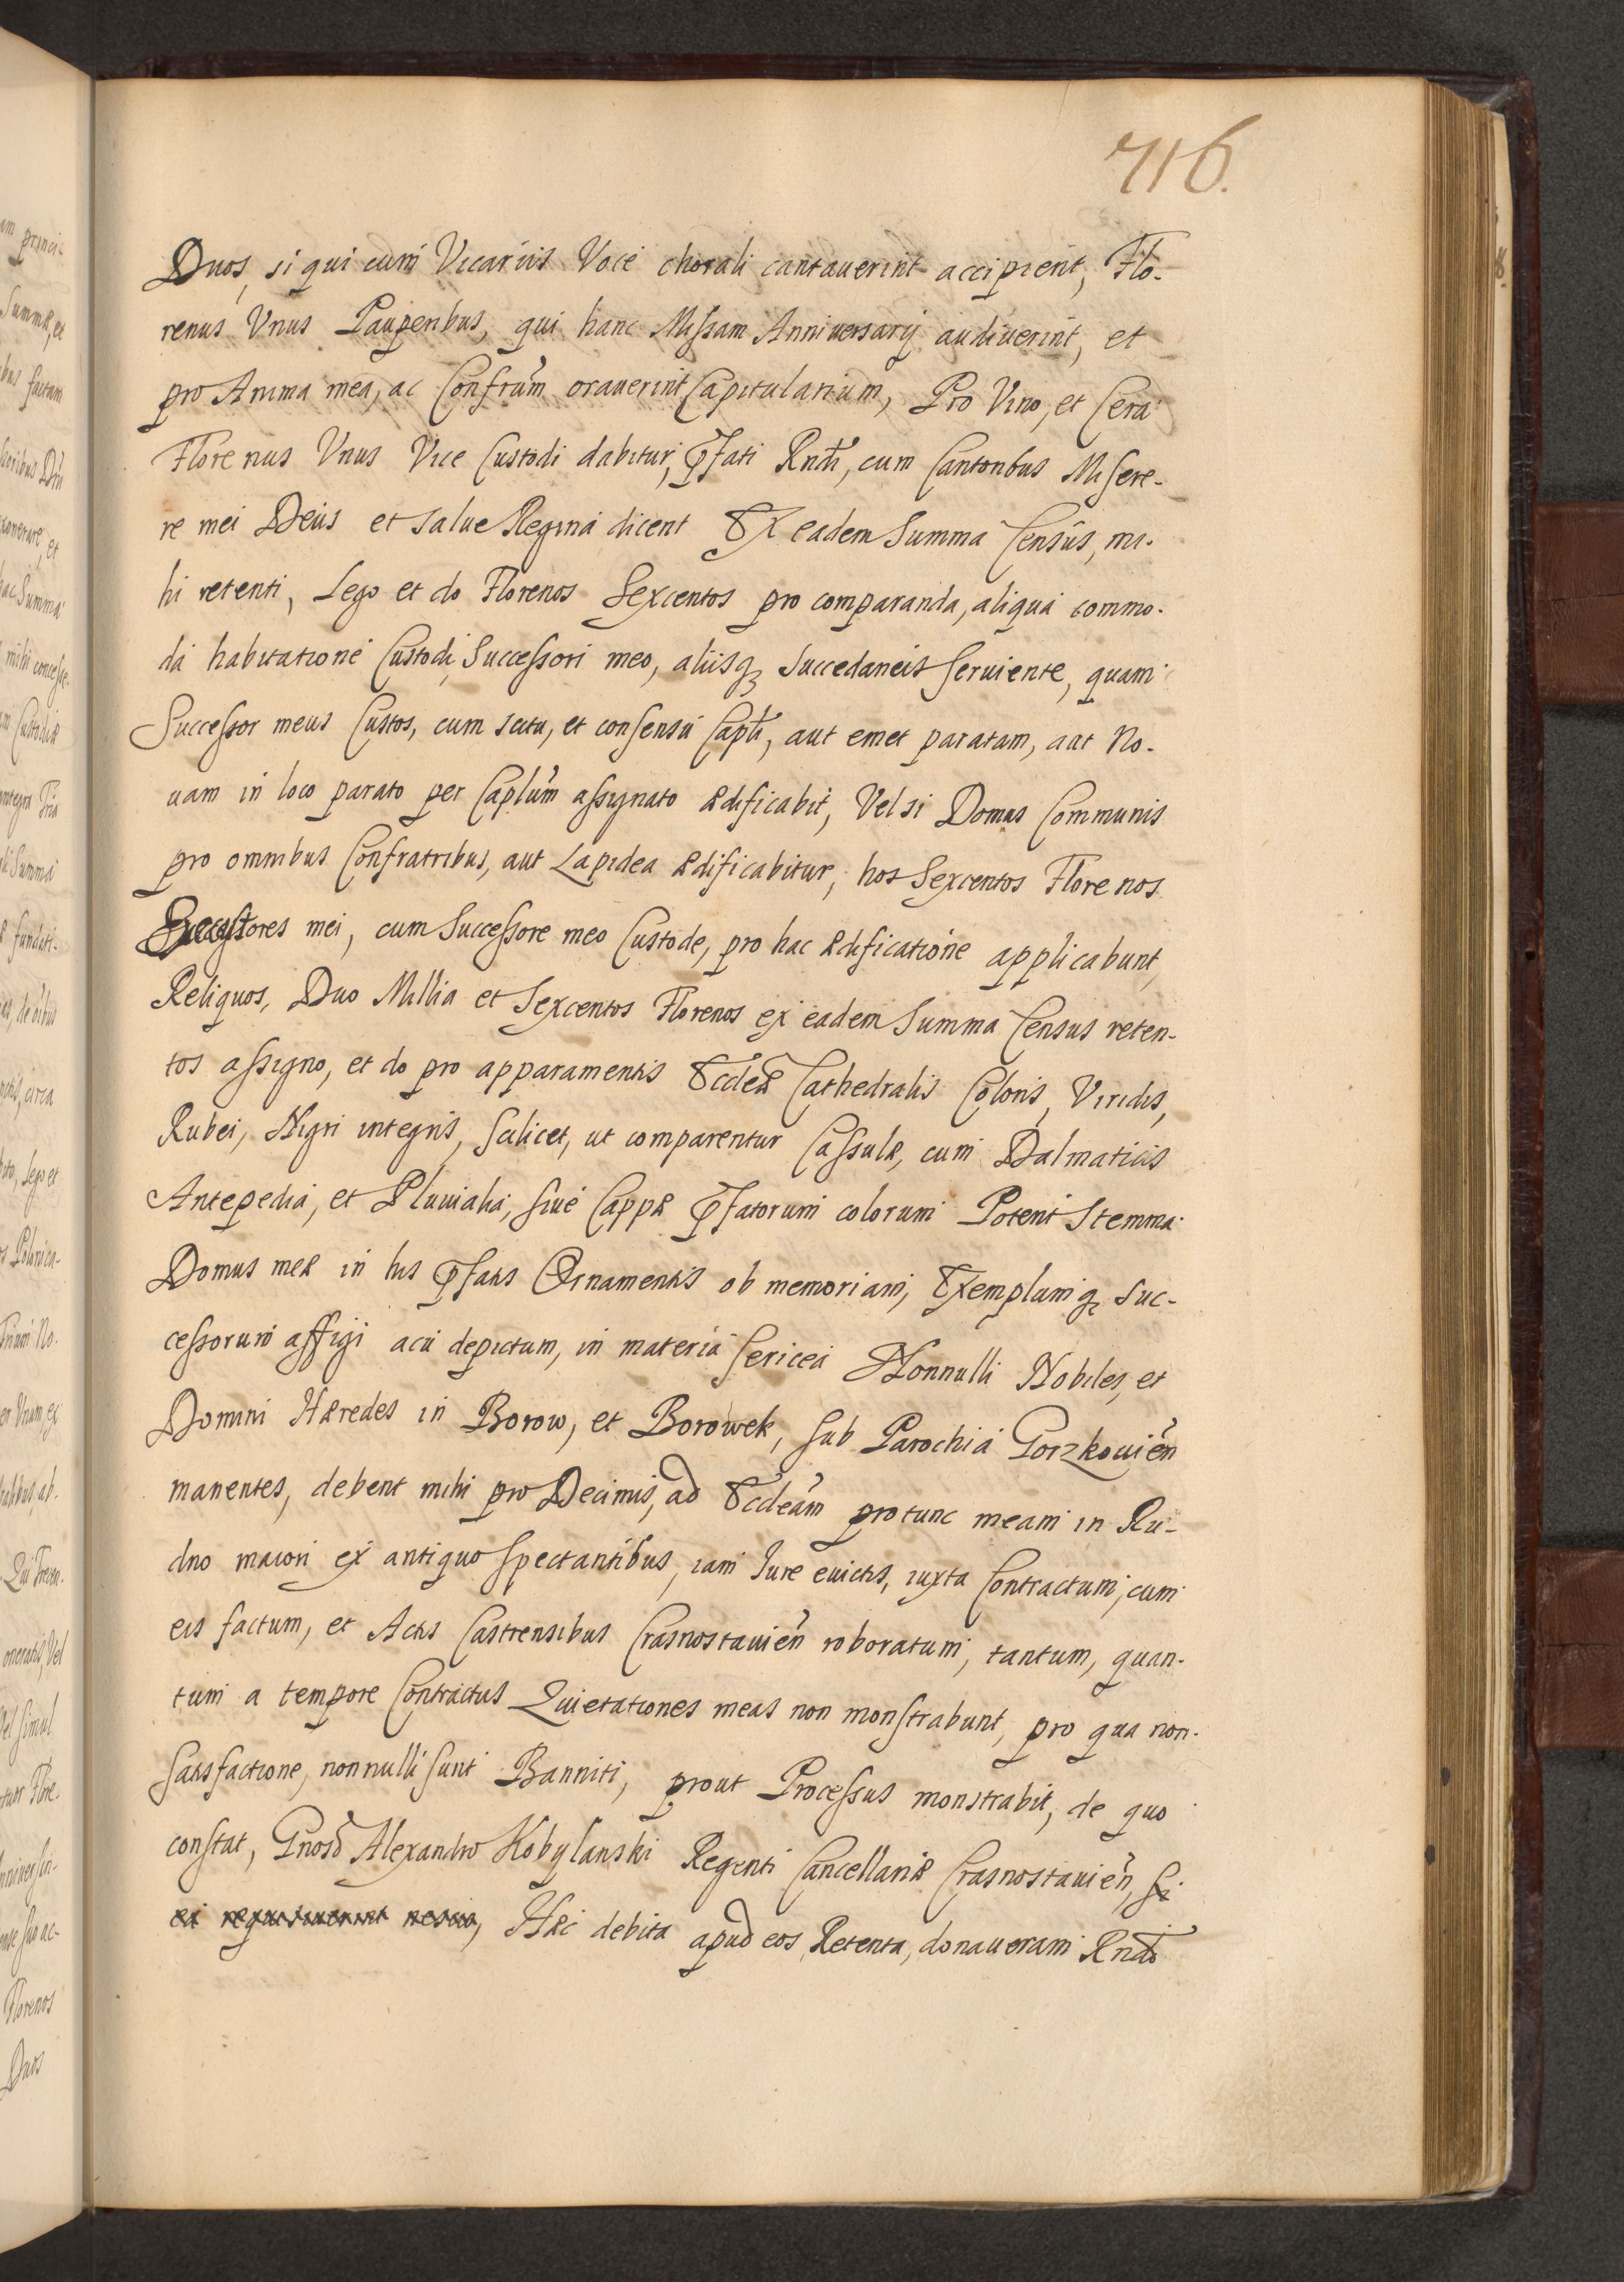 716.
Duos, si qui cum Vicariis Voce chorali cantauerint accipient, Flo-
renus Vnus Pauperibus, qui hanc Missam Anniuersarij audiuerint, et
pro Anima mea, ac Confrum̃ orauerint Capitularium, Pro Vino, et Cera
Florenus Vnus Vice Custodi dabitur, P̃fati Rndi, cum Cantoribus Misere-
re mei Deus et Salue Regina dicent Ex eadem Summa Census, mi-
hi retenti, Lego et do Florenos Sexcentos pro comparanda, aliqua commo-
da habitatione Custodi, Successori meo, aliisq3 Succedaneis seruiente, quam
Successor meus Custos, cum scitu, et consensu Capli, aut emet paratam, aut No-
uam in loco parato per Caplum̃ assignato ædificabit, Vel si Domus Communis
pro omnibus Confratribus, aut Lapidea ædificabitur, hos Sexcentos Florenos
Executores mei, cum Successore meo Custode, pro hac ædificatione applicabunt,
Reliquos, Duo Millia et Sexcentos Florenos ex eadem Summa Census reten-
tos assigno, et do pro apparamentis Eccleæ Cathedralis Coloris, Viridis,
Rubei, Nigri integris, scilicet, ut comparentur Cassulæ, cum Dalmaticis
Antepedia, et Pluuialia, siue Cappæ P̃fatorum colorum Poterit Stemma
Domus meæ in his P̃fatis Ornamentis ob memoriam, Exemplumq3 suc-
cessorum affigi acu depictum, in materia Sericea Nonnulli Nobiles, et
Domini Hæredes in Borow, et Borowek, sub Parochia Gorzkouien̄
manentes, debent mihi pro Decimis, ad Eccleam̃ pro tunc meam in Ru-
dno maiori ex antiquo spectantibus, iam Iure euictis, iuxta Contractum, cum
eis factum, et Actis Castrensibus Crasnostauien̄ roboratum, tantum, quan-
tum a tempore Contractus Quietationes meas non monstrabunt, pro qua non
satisfactione, nonnulli sunt Banniti, prout Processus monstrabit, de quo
constat, Gnoso Alexandro Kobylanski Regenti Cancellariæ Crasnostauien̄, si
ei requisiuerint nescio, Hæc debita apud eos Retenta, donaueram Rndo